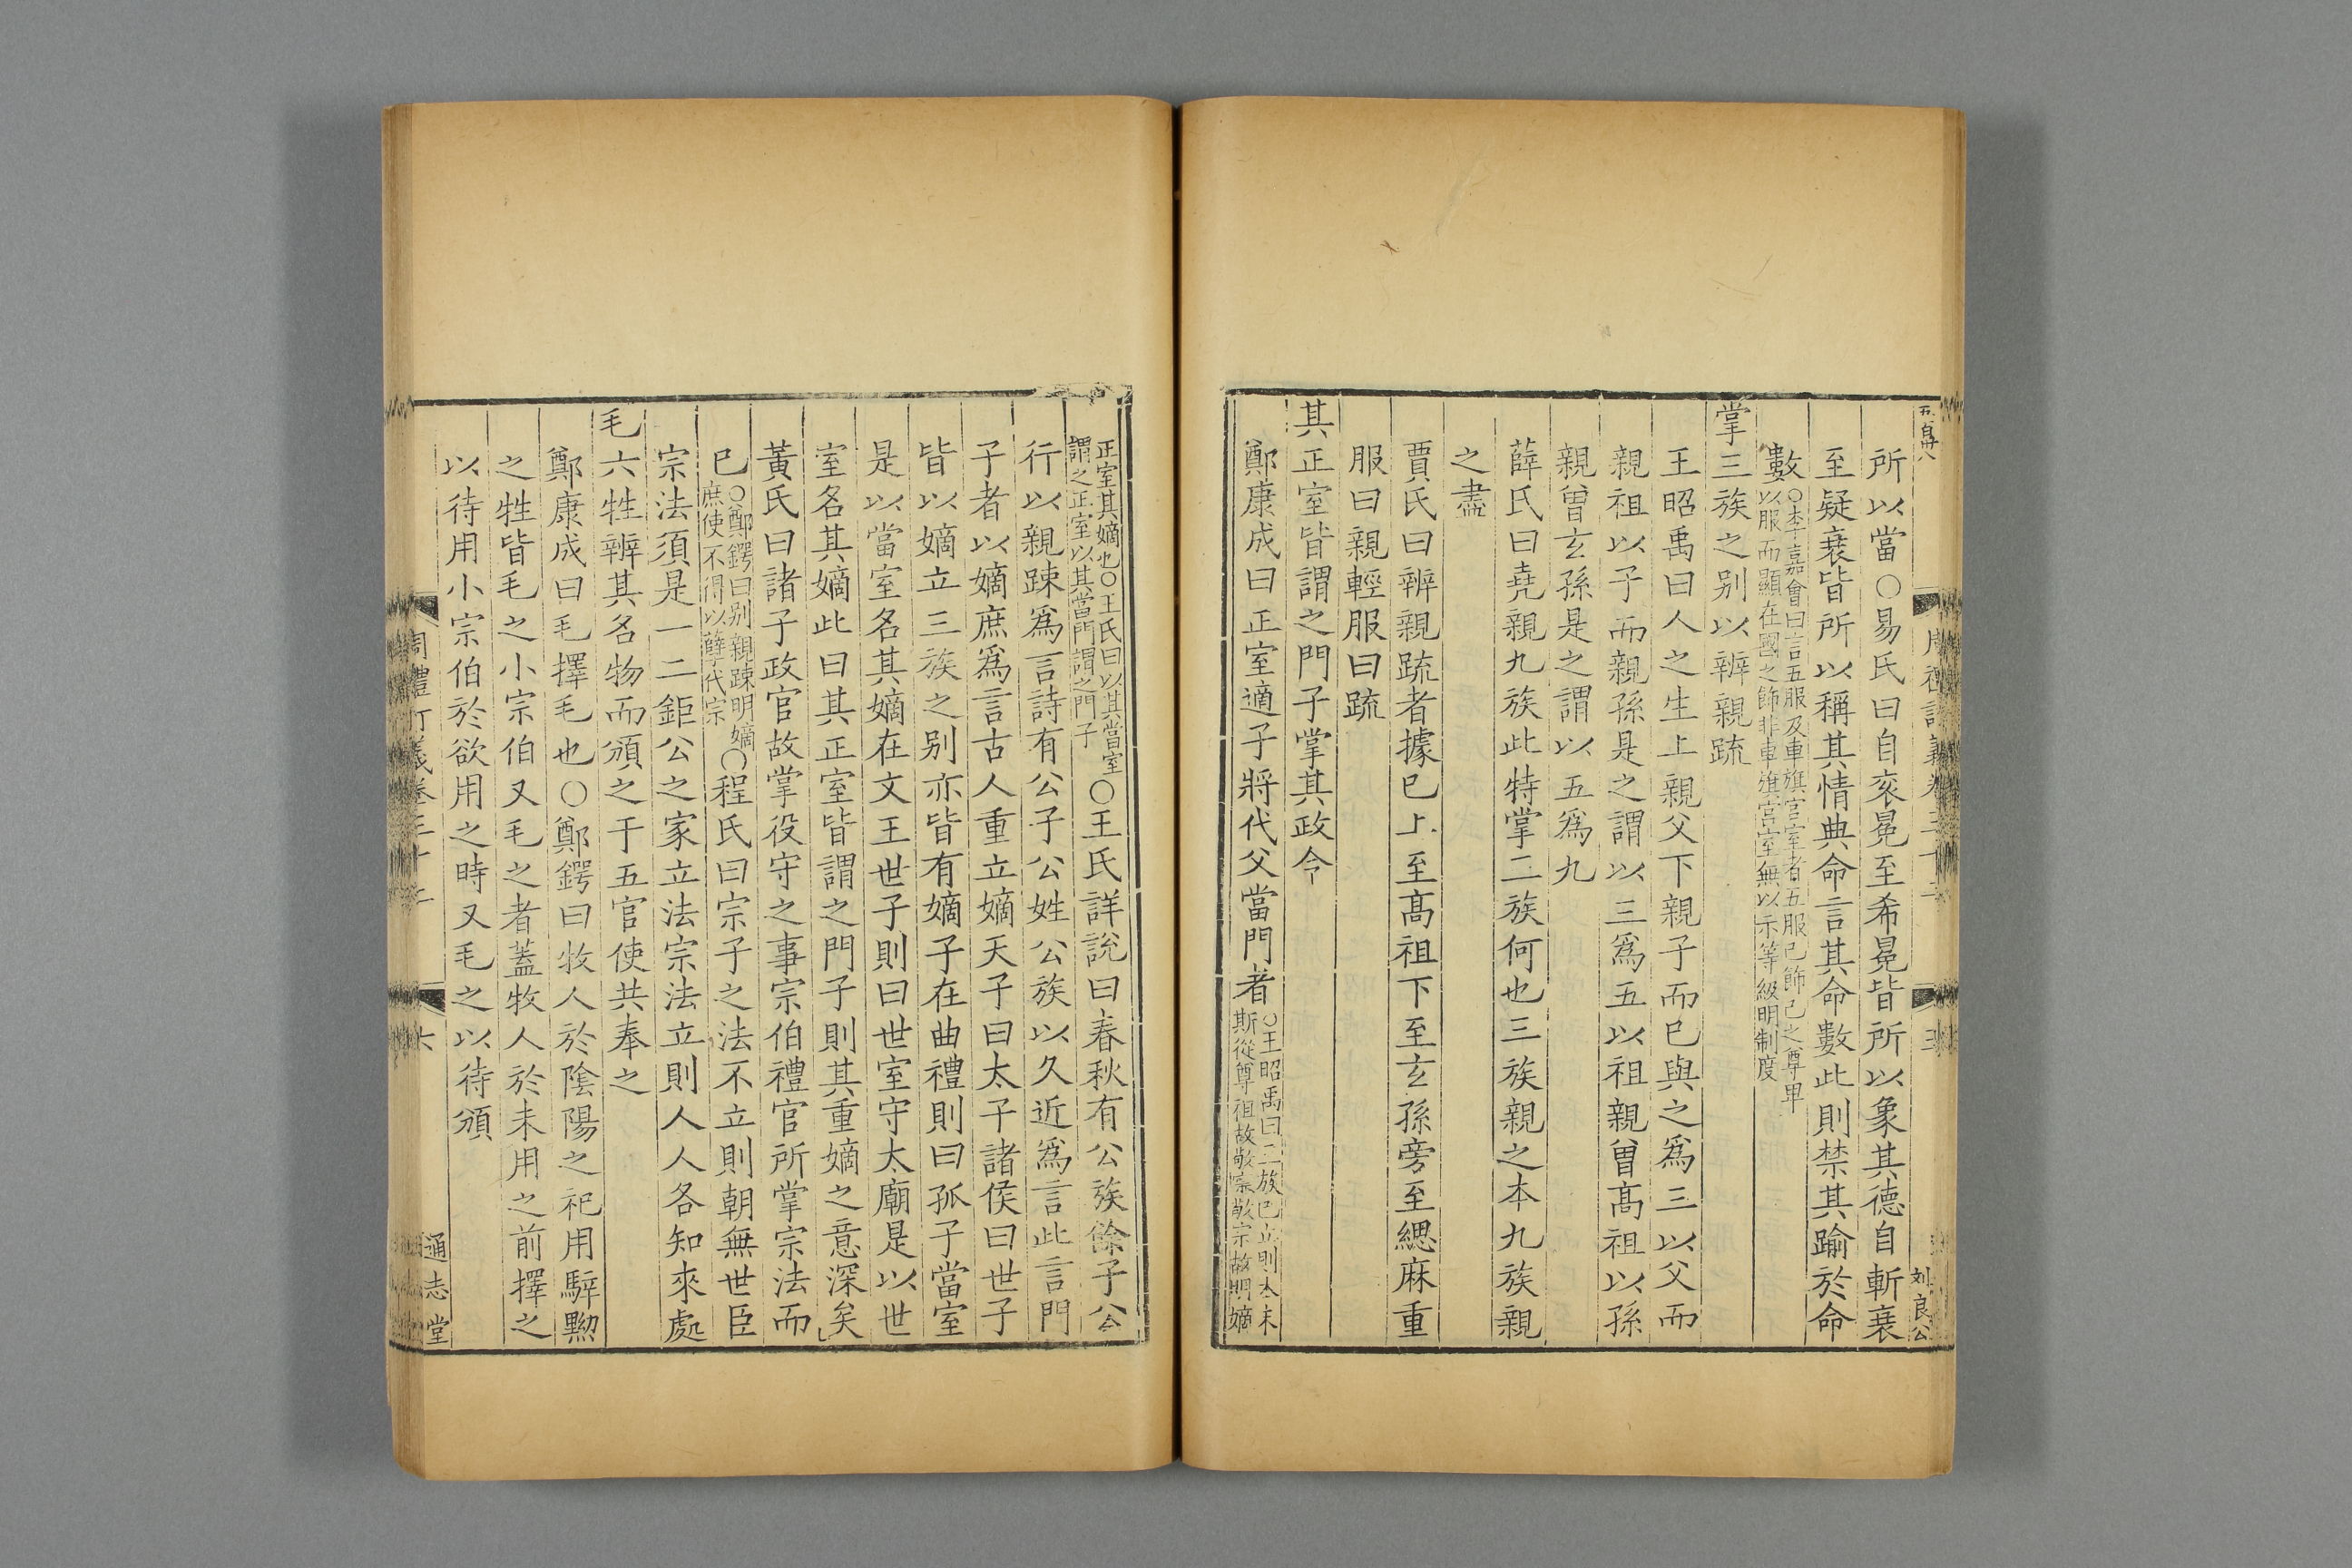 所以當○易氏曰自袞冕至希冕皆所以象其德自斬衰
至疑衰皆所以稱其情典命言其命數此則禁其踰於命
數○李嘉會曰言五服及車旗宮室者五服已飾己之尊卑
以服而顯在國之飾非車旗宮室無以示等級明制度
掌三族之别以辨親疏
王昭禹曰人之生上親父下親子而已與之爲三以父而
親祖以子而親孫是之謂以三爲五以祖親曾高祖以孫
親曾玄孫是之謂以五爲九
薛氏曰堯親九族此特掌二族何也三族親之本九族親
之盡
賈氏曰辨親疏者據已上至髙祖下至玄孫旁至緦麻重
服曰親輕服曰疏
其正室皆謂之門子掌其政令
鄭康成曰正室適子將代父當門者○王昭禹曰二族已立則本末
斯從尊祖故敬宗敬宗故明嫡
劉良公
正室其嫡也○王氏曰以其當室
謂之正室以其當門謂之門子
○王氏詳說曰春秋有公族餘子公
行以親踈爲言詩有公子公姓公族以久近爲言此言門
子者以嫡庶爲言古人重立嫡天子曰太子諸侯曰世子
皆以嫡立三族之别亦皆有嫡子在曲禮則曰孤子當室
是以當室名其嫡在文王世子則曰世室守太廟是以世
室名其嫡此曰其正室皆謂之門子則其重嫡之意深矣
黃氏曰諸子政官故掌役守之事宗伯禮官所掌宗法而
已○鄭鍔曰别親踈明嫡
庶使不得以孽代宗
○程氏曰宗子之法不立則朝無世臣
宗法須是一二鉅公之家立法宗法立則人人各知來處
毛六牲辨其名物而頒之于五官使共奉之
鄭康成曰毛擇毛也○鄭鍔曰牧人於陰陽之祀用騂黝
之牲皆毛之小宗伯又毛之者蓋牧人於未用之前擇之
以待用小宗伯於欲用之時又毛之以待頒
周禮訂義卷三十二
六
通志堂